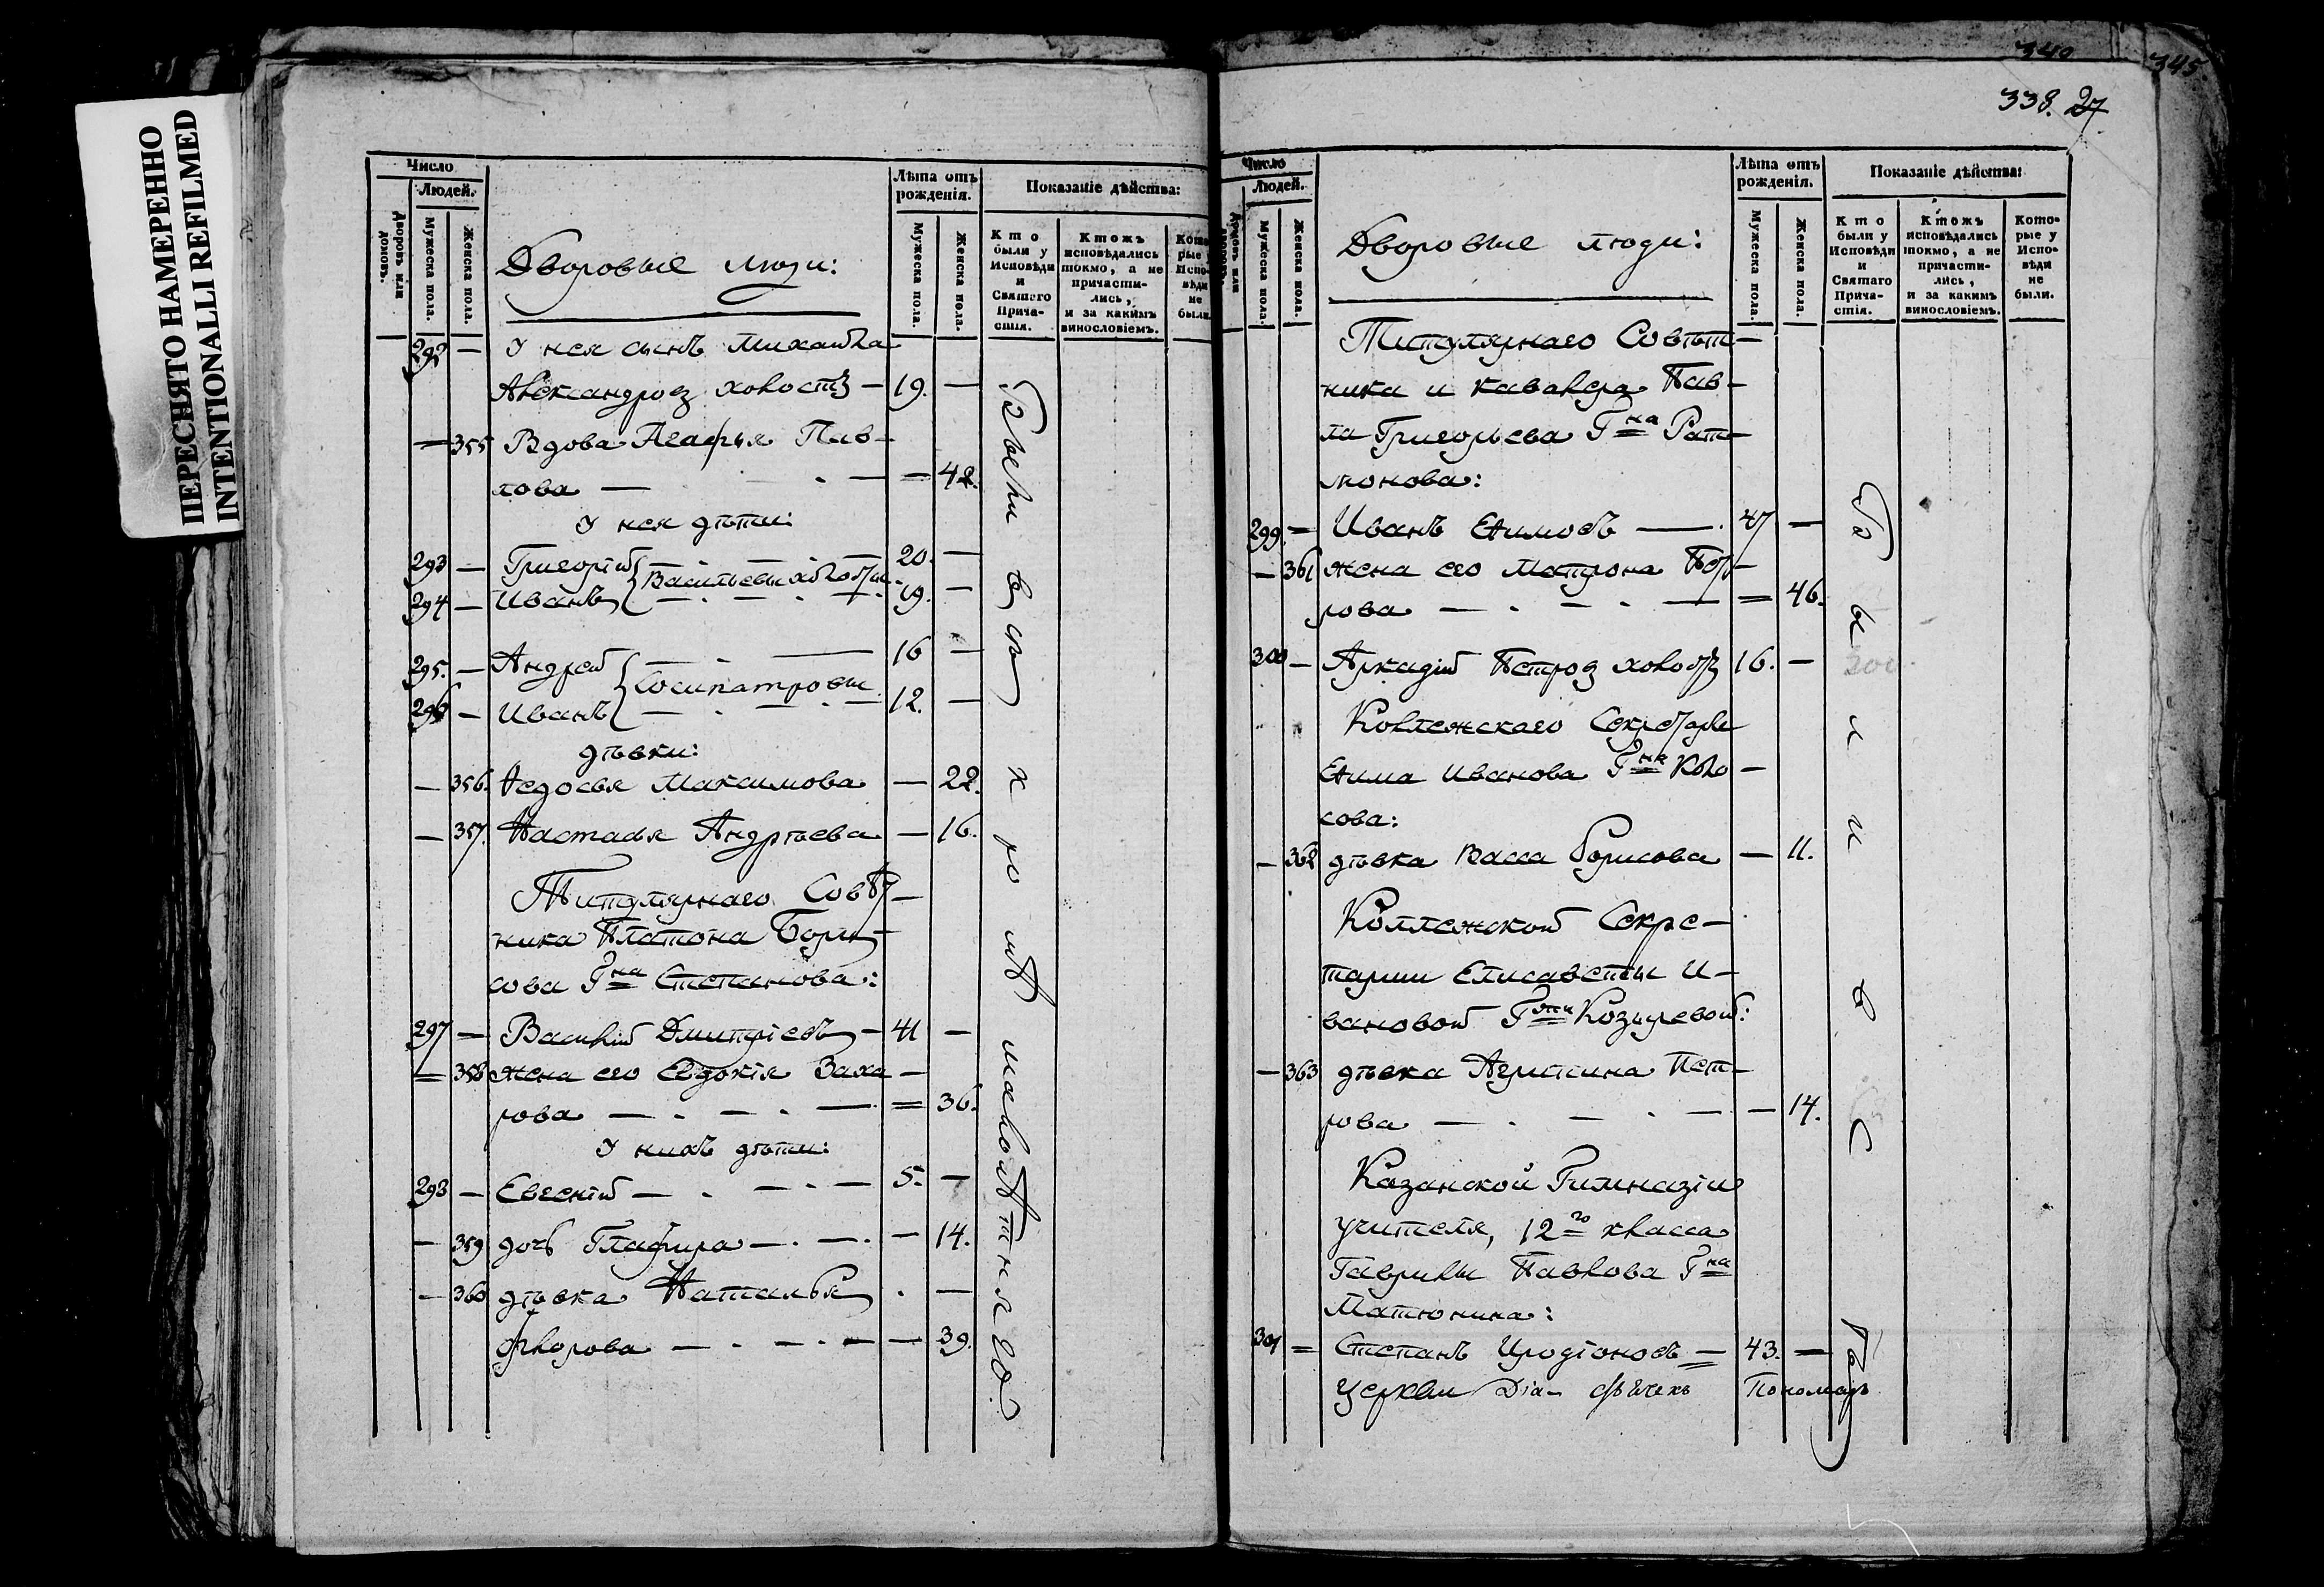 ПЕРЕСНЯТО НАМЕРЕННО
INTENTIONALLI REFILMED
Число
Людей.
Дворовъ или домовъ.
Мужеска пола.
Женска пола.
Дворовые люди:
Лѣта отъ рожденія.
Мужеска пола.
Женска пола.
Показаніе дѣйства:
Кто были у Исповѣди и Святаго Причастія.
Ктожъ исповѣдались токмо, а не причастились, и за какимъ винословіемъ.
Которые у Исповѣди не были.
292 — У нея сынъ Михайла
Александровъ холостъ — 19. —
— 355 Вдова Агафья Пав-
лова — — 42.
У нея дѣти:
293 — Григорій 20. —
Васильевы холосты
294 — Иванъ 19. —
295. — Андрей 16 —
Сосипатровы
296 — Иванъ 12. —
дѣвки:
— 356. Ѳедосья Максимова — 22.
— 357. Настасья Андрѣева — 16.
Титулярнаго Совѣт-
ника Платона Бори-
сова Гна Степанова:
297 — Василій Дмитріевъ — 41 —
— 358 жена его Евдокія Заха-
рова — — 36.
У нихъ дѣти:
298 — Евгеній — 5. —
— 359 дочь Глафира — — 14.
— 360 дѣвка Наталья
Флорова — — 39.
Были всѣ кромѣ малолѣтняго.
340
345
338. 27
Число
Людей.
Мужеска пола.
Женска пола.
Дворовые люди:
Лѣта отъ рожденія.
Мужеска пола.
Женска пола.
Показаніе дѣйства:
Кто были у Исповѣди и Святаго Причастія.
Ктожъ исповѣдались токмо, а не причастились, и за какимъ винословіемъ.
Которые у Исповѣди не были.
Титулярнаго Совѣт-
ника и кавалера Пав-
ла Григорьева Гна Рат-
монова:
299. — Иванъ Ефимовъ — 47 —
— 361 жена его Матрона Пет-
рова — — 46.
300 — Аркадій Петровъ холостъ 16. —
Коллежскаго Секретаря
Ефима Иванова Гна Коло-
сова:
— 362 дѣвка Васса Борисова — 11.
Коллежской Секре-
тарши Елисаветы И-
вановой Гжи Козыревой:
— 363 дѣвка Агрипина Пет-
рова — — 14.
Казанской Гимназіи
учителя, 12го класса
Гаврилы Павлова Гна
Матюнина:
301 — Степанъ Иродіоновъ — 43. —
Были
Церкви Діа-
Пономарь